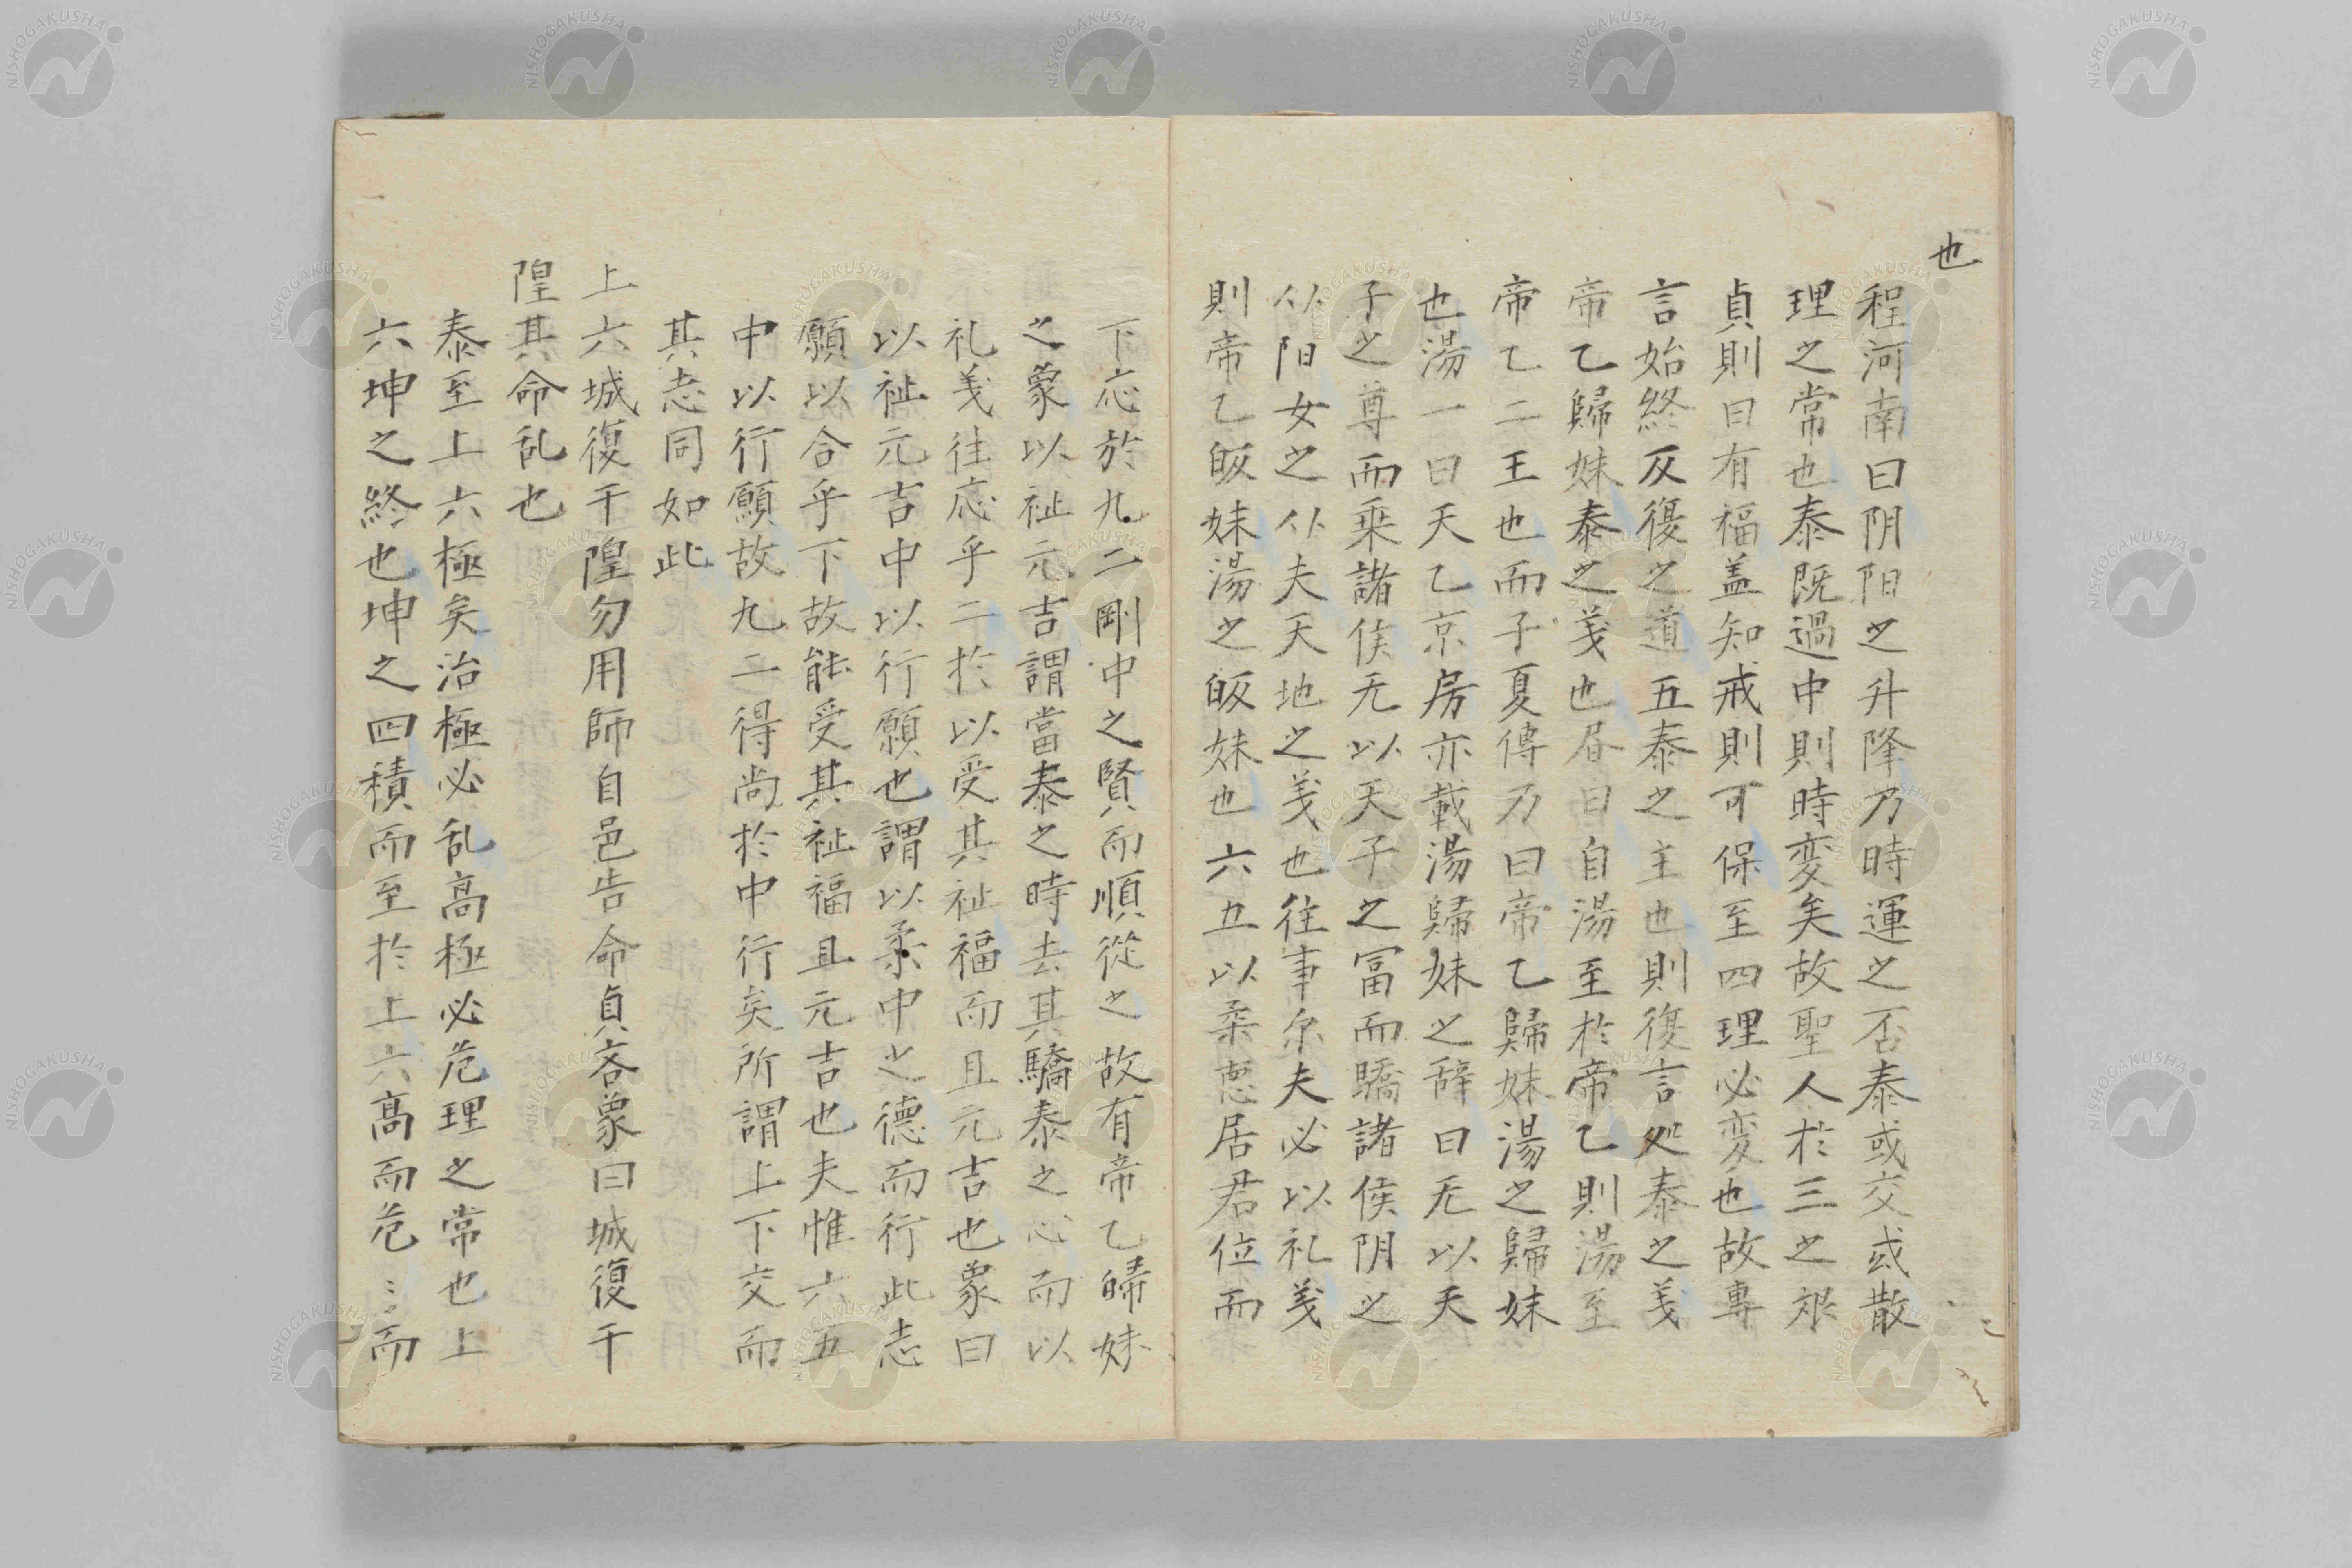 也
程河南曰阴阳之升降乃時運之否泰或交或散
理之常也泰既過中則時変矣故聖人於三之
貞則曰有福盖知戒則可保至四理必変也故專
言始終反復之道五泰之主也則復言処泰之義
帝乙歸妹泰之義也昏曰自湯至於帝乙則湯至
帝乙二王也而子夏傳乃曰帝乙歸妹湯之歸妹
也湯一曰天乙京房亦載湯歸妹之辞曰无以天
子之尊而乗諸侯无以天子之冨而驕諸侯阴之
从阳女之从夫天地之義也往事尓夫必以礼義
則帝乙皈妹湯之皈妹也六五以柔恵居君位而
下応於九二剛中之賢而順從之故有帝乙皈妹
之象以祉元吉謂當泰之時去其驕泰之心而以
礼義往応乎二於以受其祉福而且元吉也象曰
以祉元吉中以行願也謂以柔中之德而行此志
願以合乎下故能受其祉福且元吉也夫惟六五
中以行願故九二得尚於中行矣所謂上下交而
其志同如此
上六城復于隍勿用師自邑告命貞吝象曰城復于
隍其命乱也
泰至上六極矣治極必乱高極必危理之常也上
六坤之終也坤之四積而至於上六髙而危〻而